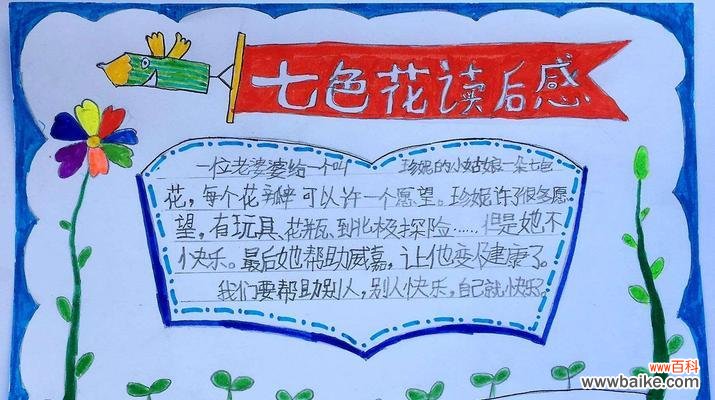 七色花读后感
一位老婆婆给一个叫 珍妮的小姑娘一朵七色
花，每个花瓣可以许一个愿望。珍妮许了很多愿
望，有玩具、花瓶、到北极探险……但是她不
快乐。最后她帮助威嘉，让他变健康了。
我们要帮助别人，别人快乐，自己就快乐。
www百科
www.baike.com